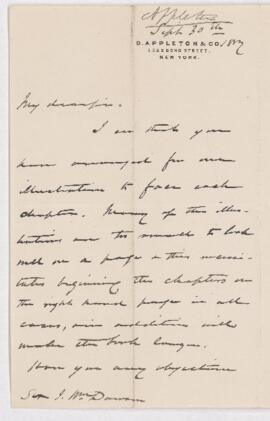 Appleton
Sept 30th
D. APPLETON & CO. 1887
1, 3 & 5 BOND STREET,
NEW YORK.
My dear Sir.
I see that you
have arranged for one
illustration to face each
chapter. Many of the illus-
trations are too small to look
well on a page & this necessi-
tates beginning the chapters on
the right hand page in all
cases, and additions will
make the book longer.
Have you any objection
Sir J. Wm Dawson